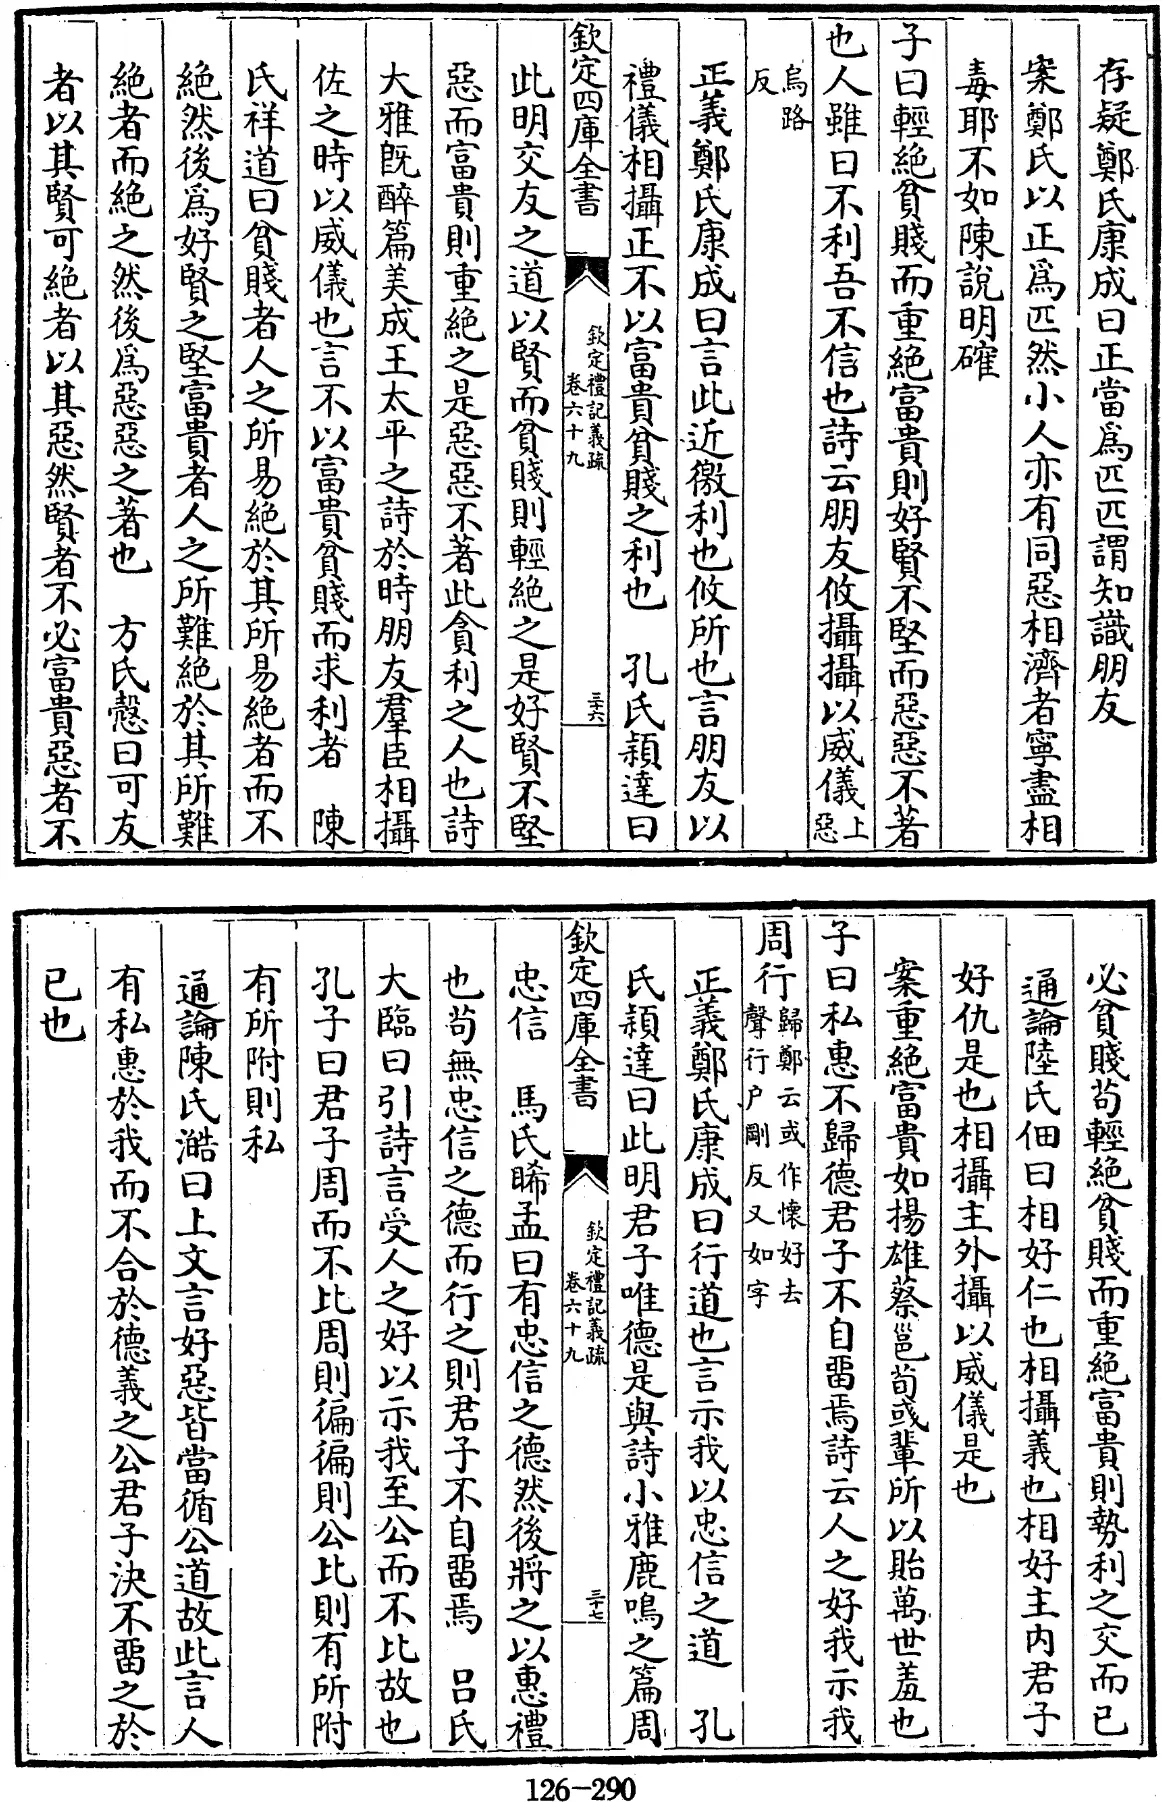 存疑鄭氏康成曰正當爲匹匹謂知識朋友
案鄭氏以正爲匹然小人亦有同惡相濟者寧盡相
毒耶不如陳說明確
子曰輕絶貧賤而重絶富貴則好賢不堅而惡惡不著
也人雖曰不利吾不信也詩云朋友攸攝攝以威儀上惡
烏路反
正義鄭氏康成曰言此近徼利也攸所也言朋友以
禮儀相攝正不以富貴貧賤之利也 孔氏穎達曰
欽定四庫全書 欽定禮記義疏 卷六十九 三十六
此明交友之道以賢而貧賤則輕絶之是好賢不堅
惡而富貴則重絶之是惡惡不著此貪利之人也詩
大雅旣醉篇美成王太平之詩於時朋友羣臣相攝
佐之時以威儀也言不以富貴貧賤而求利者 陳
氏祥道曰貧賤者人之所易絶於其所易絶者而不
絶然後爲好賢之堅富貴者人之所難絶於其所難
絶者而絶之然後爲惡惡之著也 方氏慤曰可友
者以其賢可絶者以其惡然賢者不必富貴惡者不
必貧賤茍輕絶貧賤而重絶富貴則勢利之交而已
通論陸氏佃曰相好仁也相攝義也相好主内君子
好仇是也相攝主外攝以威儀是也
案重絶富貴如揚雄蔡邕荀彧輩所以貽萬世羞也
子曰私惠不歸德君子不自畱焉詩云人之好我示我
周行歸鄭云或作懷好去聲行户剛反又如字
正義鄭氏康成曰行道也言示我以忠信之道 孔
氏穎達曰此明君子唯德是與詩小雅鹿鳴之篇周
欽定四庫全書 欽定禮記義疏 卷六十九 三十七
忠信 馬氏睎孟曰有忠信之德然後將之以惠禮
也茍無忠信之德而行之則君子不自畱焉 吕氏
大臨曰引詩言受人之好以示我至公而不比故也
孔子曰君子周而不比周則徧徧則公比則有所附
有所附則私
通論陳氏澔曰上文言好惡皆當循公道故此言人
有私惠於我而不合於德義之公君子決不畱之於
已也
126-290